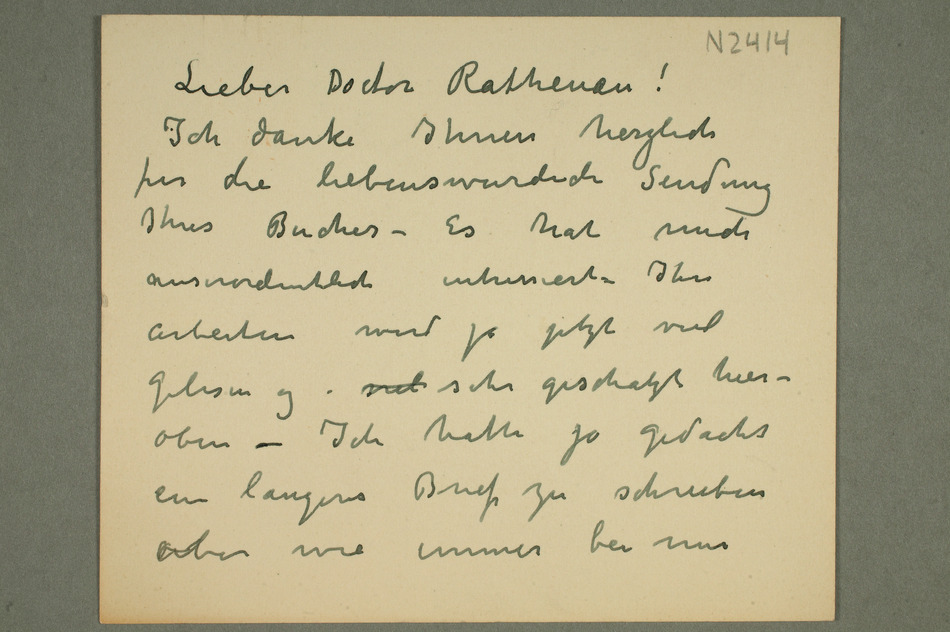 N2414
Lieber Doctor Rathenau!
Ich danke Ihnen herzlich
fur die liebenswurdich Sendung
Ihres Buches – Es hat mich
ausserordentlich intressiert – Ihre
arbeiten wird ja jetzt viel
gelesen og . viel sehr geschatzt hier –
oben – Ich hatte ja gedacht
ein langeres Brief zu schreiben
aber wie immer bei mir